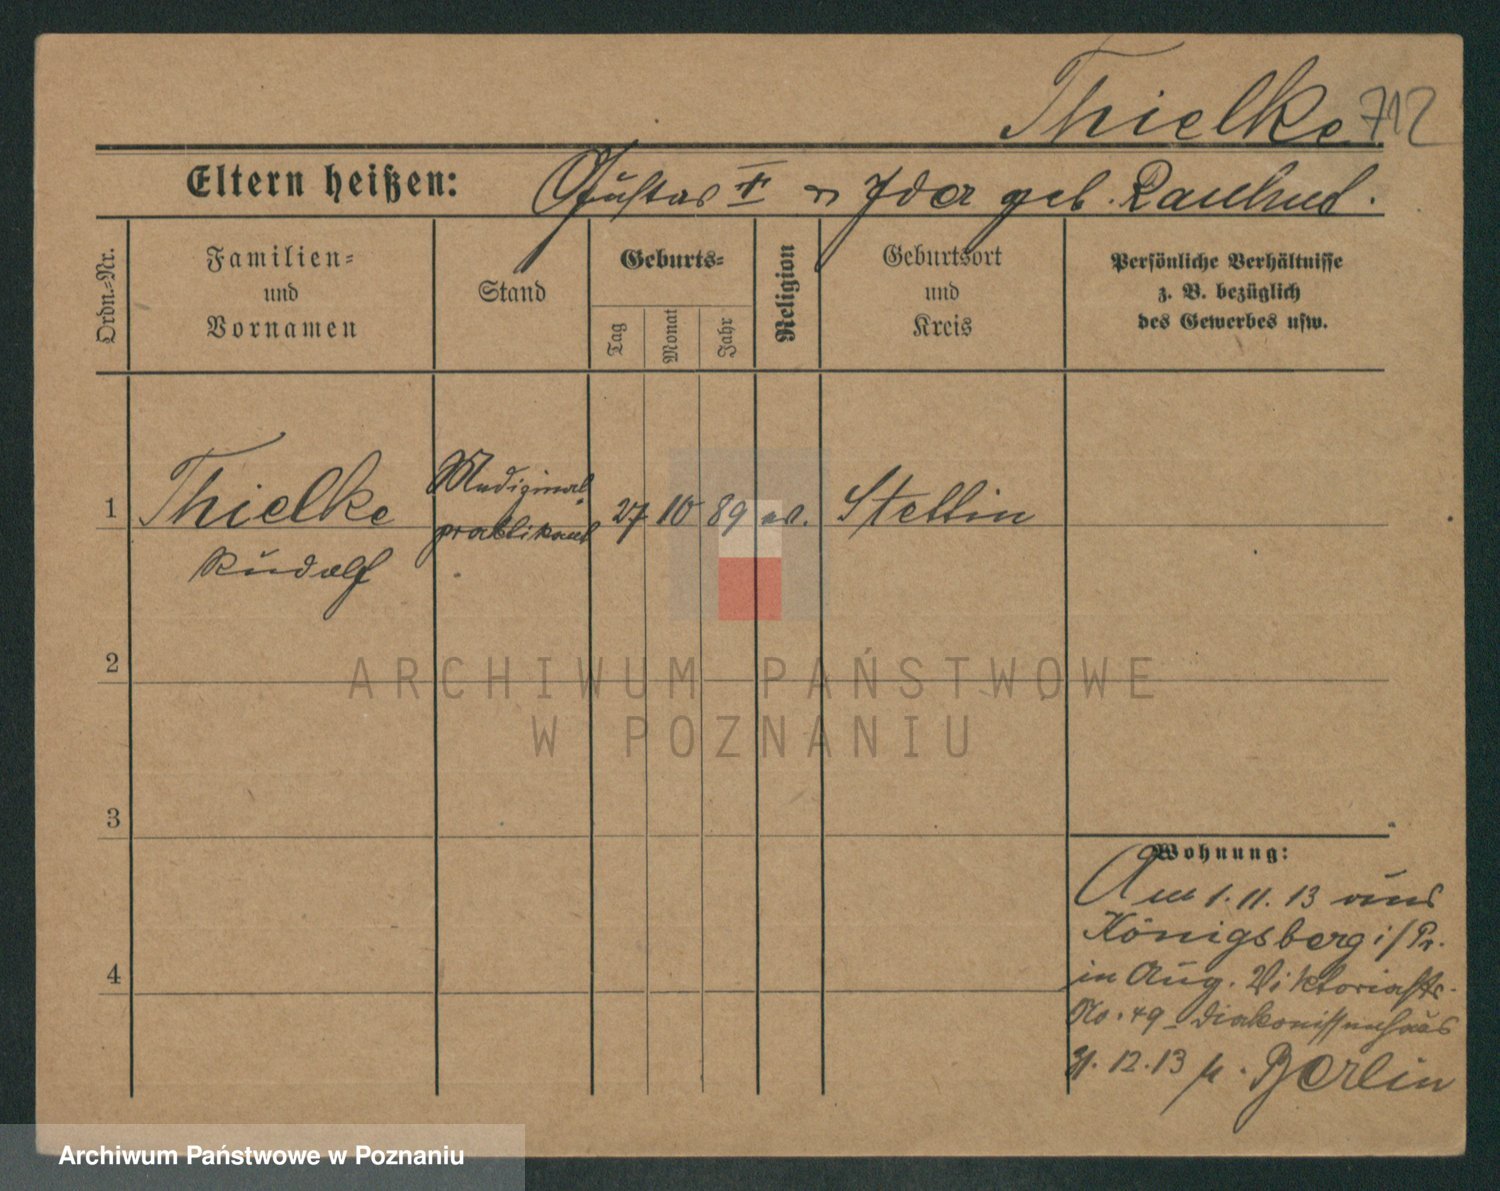 Thielke 712
Eltern heißen: Gustav † u Ida geb. Rauhud.
Ordn.-Nr.
Familien-
und
Vornamen
Stand
Geburts-
Tag
Monat
Jahr
Religion
Geburtsort
und
Kreis
Persönliche Verhältnisse
z. B. bezüglich
des Gewerbes usw.
1 Thielke Medizinal 27 10 89 ev. Stettin
praktikant
Rudolf
2
3
4
Wohnung:
Am 1.11.13 aus
Königsberg i/Pr.
in Aug. Viktoriastr.
No. 49 - Diakonissenhaus
31.12.13 n. Berlin
ARCHIWUM PAŃSTWOWE
W POZNANIU
Archiwum Państwowe w Poznaniu